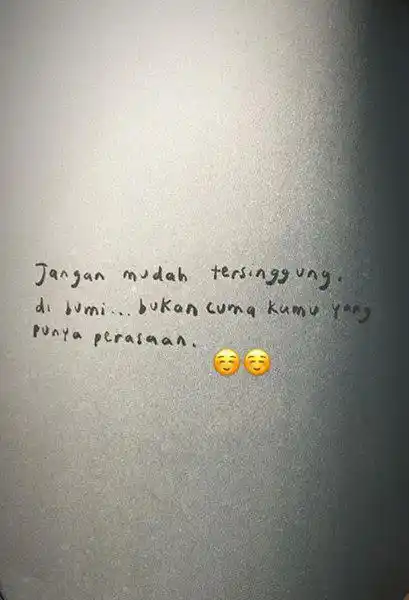 Jangan mudah tersinggung.
di bumi... bukan cuma kamu yang
punya perasaan.
☺️☺️